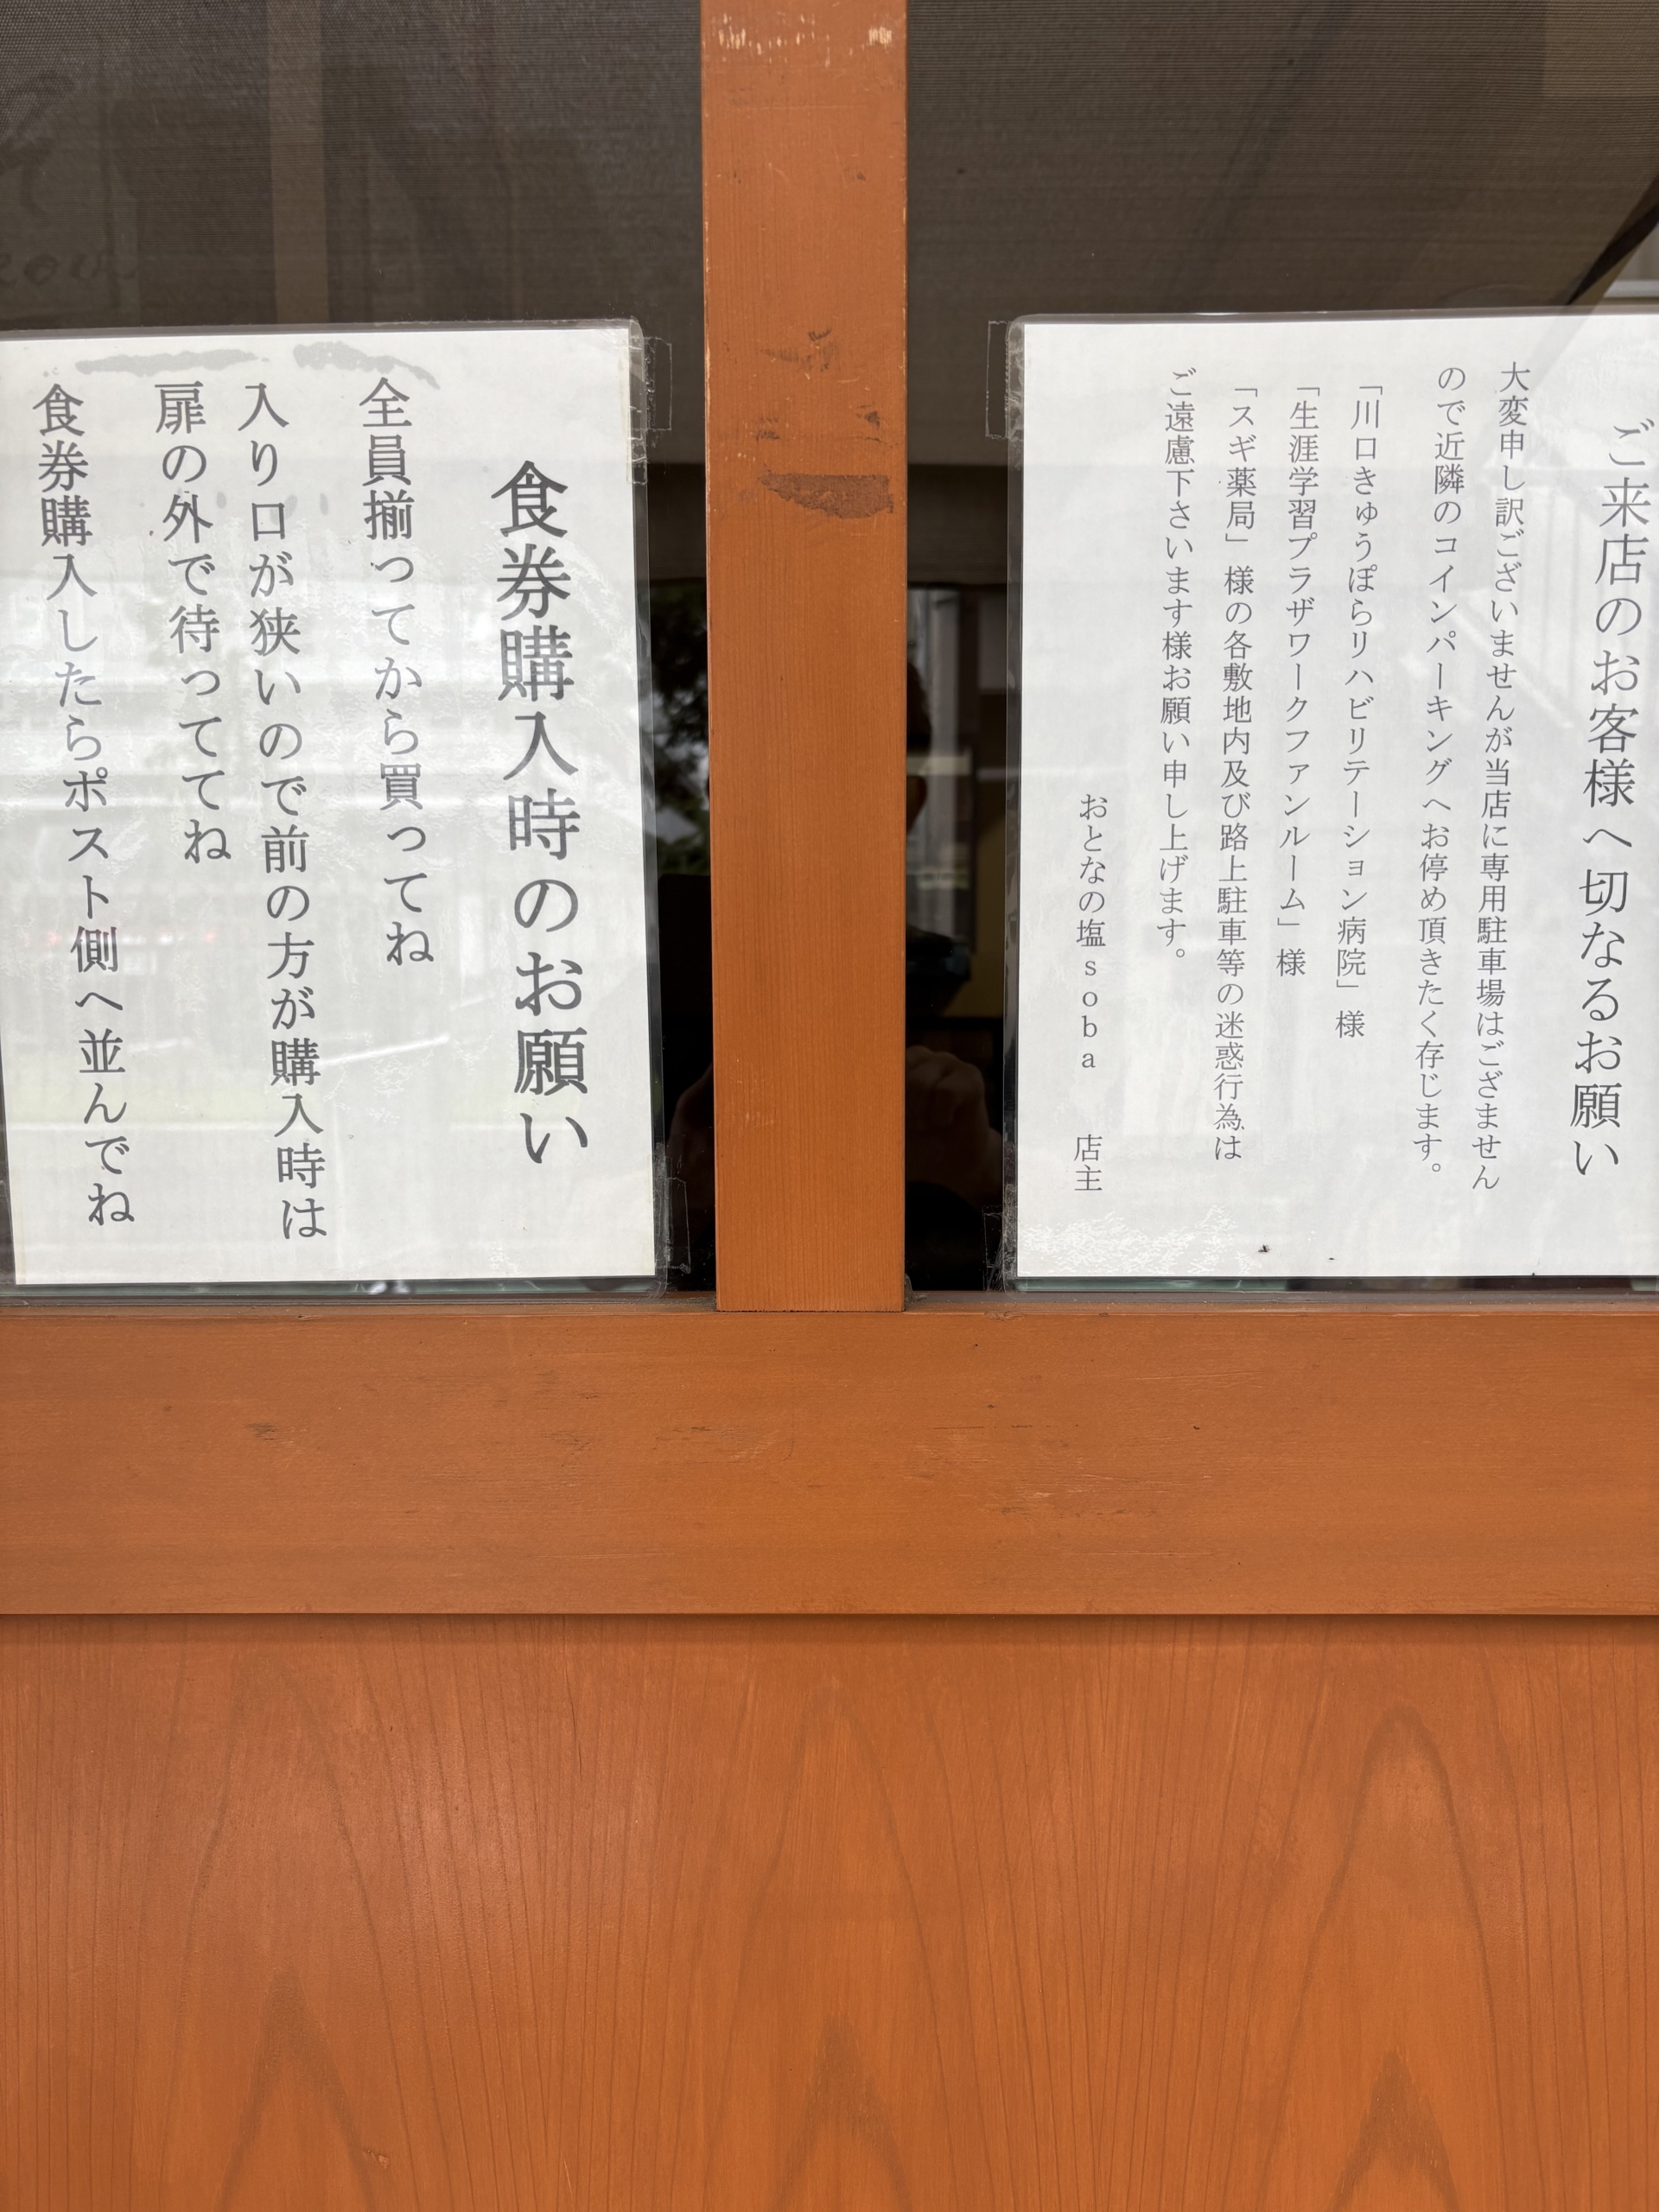 ご来店のお客様へ切なるお願い
大変申し訳ございませんが当店に専用駐車場はござません
ので近隣のコインパーキングへお停め頂きたく存じます。
「川口きゅうぽらリハビリテーション病院」様
「生涯学習プラザワークファンルーム」様
「スギ薬局」様の各敷地内及び路上駐車等の迷惑行為は
ご遠慮下さいます様お願い申し上げます。
おとなの塩soba 店主
食券購入時のお願い
全員揃ってから買ってね
入り口が狭いので前の方が購入時は
扉の外で待っててね
食券購入したらポスト側へ並んでね